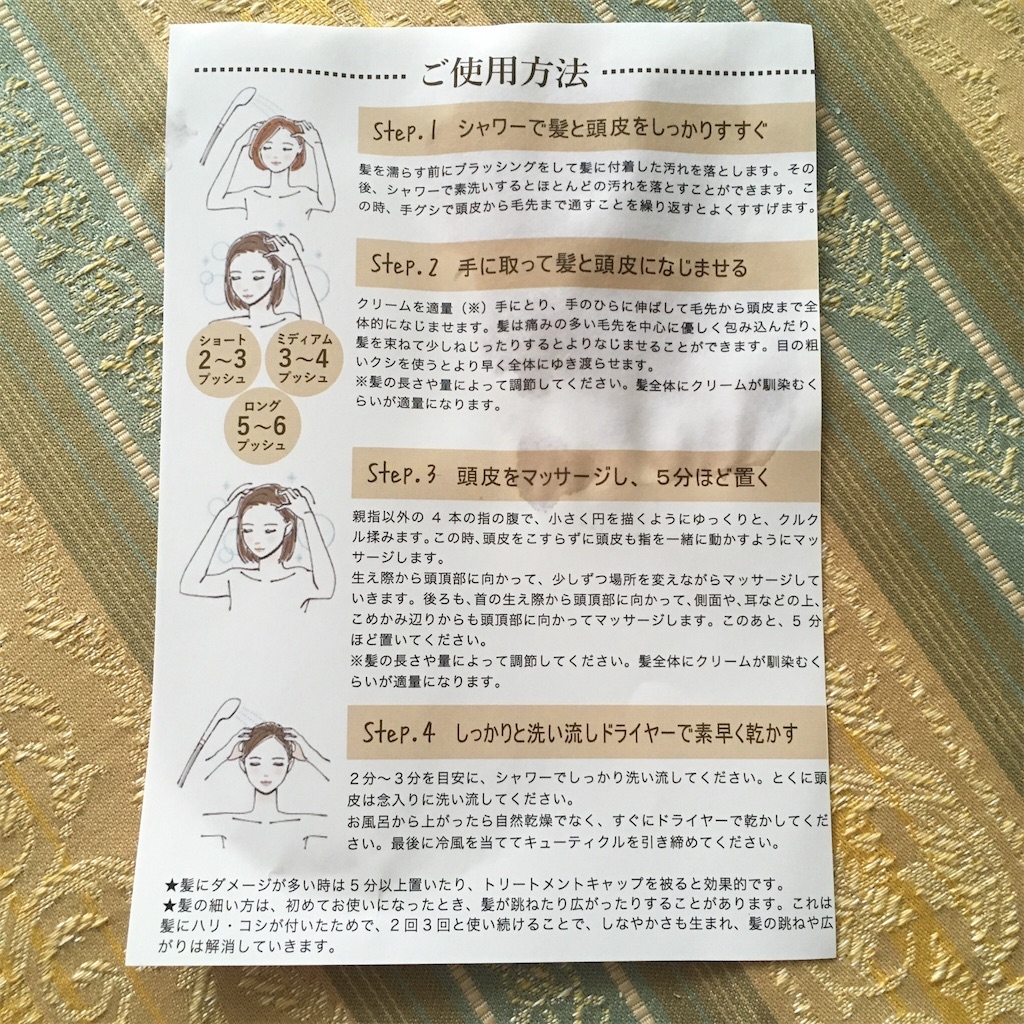 ご使用方法
Step.1 シャワーで髪と頭皮をしっかりすすぐ
髪を濡らす前にブラッシングをして髪に付着した汚れを落とします。その
後、シャワーで素洗いするとほとんどの汚れを落とすことができます。こ
の時、手グシで頭皮から毛先まで通すことを繰り返すとよくすすげます。
Step.2 手に取って髪と頭皮になじませる
クリームを適量（※）手にとり、手のひらに伸ばして毛先から頭皮まで全
体的になじませます。髪は痛みの多い毛先を中心に優しく包み込んだり、
髪を束ねて少しねじったりするとよりなじませることができます。目の粗
いクシを使うとより早く全体にゆき渡らせます。
※髪の長さや量によって調節してください。髪全体にクリームが馴染むく
らいが適量になります。
ショート
2〜3
プッシュ
ミディアム
3〜4
プッシュ
ロング
5〜6
プッシュ
Step.3 頭皮をマッサージし、５分ほど置く
親指以外の 4 本の指の腹で、小さく円を描くようにゆっくりと、クルク
ル揉みます。この時、頭皮をこすらずに頭皮も指を一緒に動かすようにマッ
サージします。
生え際から頭頂部に向かって、少しずつ場所を変えながらマッサージして
いきます。後ろも、首の生え際から頭頂部に向かって、側面や、耳などの上、
こめかみ辺りからも頭頂部に向かってマッサージします。このあと、5 分
ほど置いてください。
※髪の長さや量によって調節してください。髪全体にクリームが馴染むく
らいが適量になります。
Step.4 しっかりと洗い流しドライヤーで素早く乾かす
２分〜３分を目安に、シャワーでしっかり洗い流してください。とくに頭
皮は念入りに洗い流してください。
お風呂から上がったら自然乾燥でなく、すぐにドライヤーで乾かしてくだ
さい。最後に冷風を当ててキューティクルを引き締めてください。
★髪にダメージが多い時は５分以上置いたり、トリートメントキャップを被ると効果的です。
★髪の細い方は、初めてお使いになったとき、髪が跳ねたり広がったりすることがあります。これは
髪にハリ・コシが付いたためで、２回３回と使い続けることで、しなやかさも生まれ、髪の跳ねや広
がりは解消していきます。